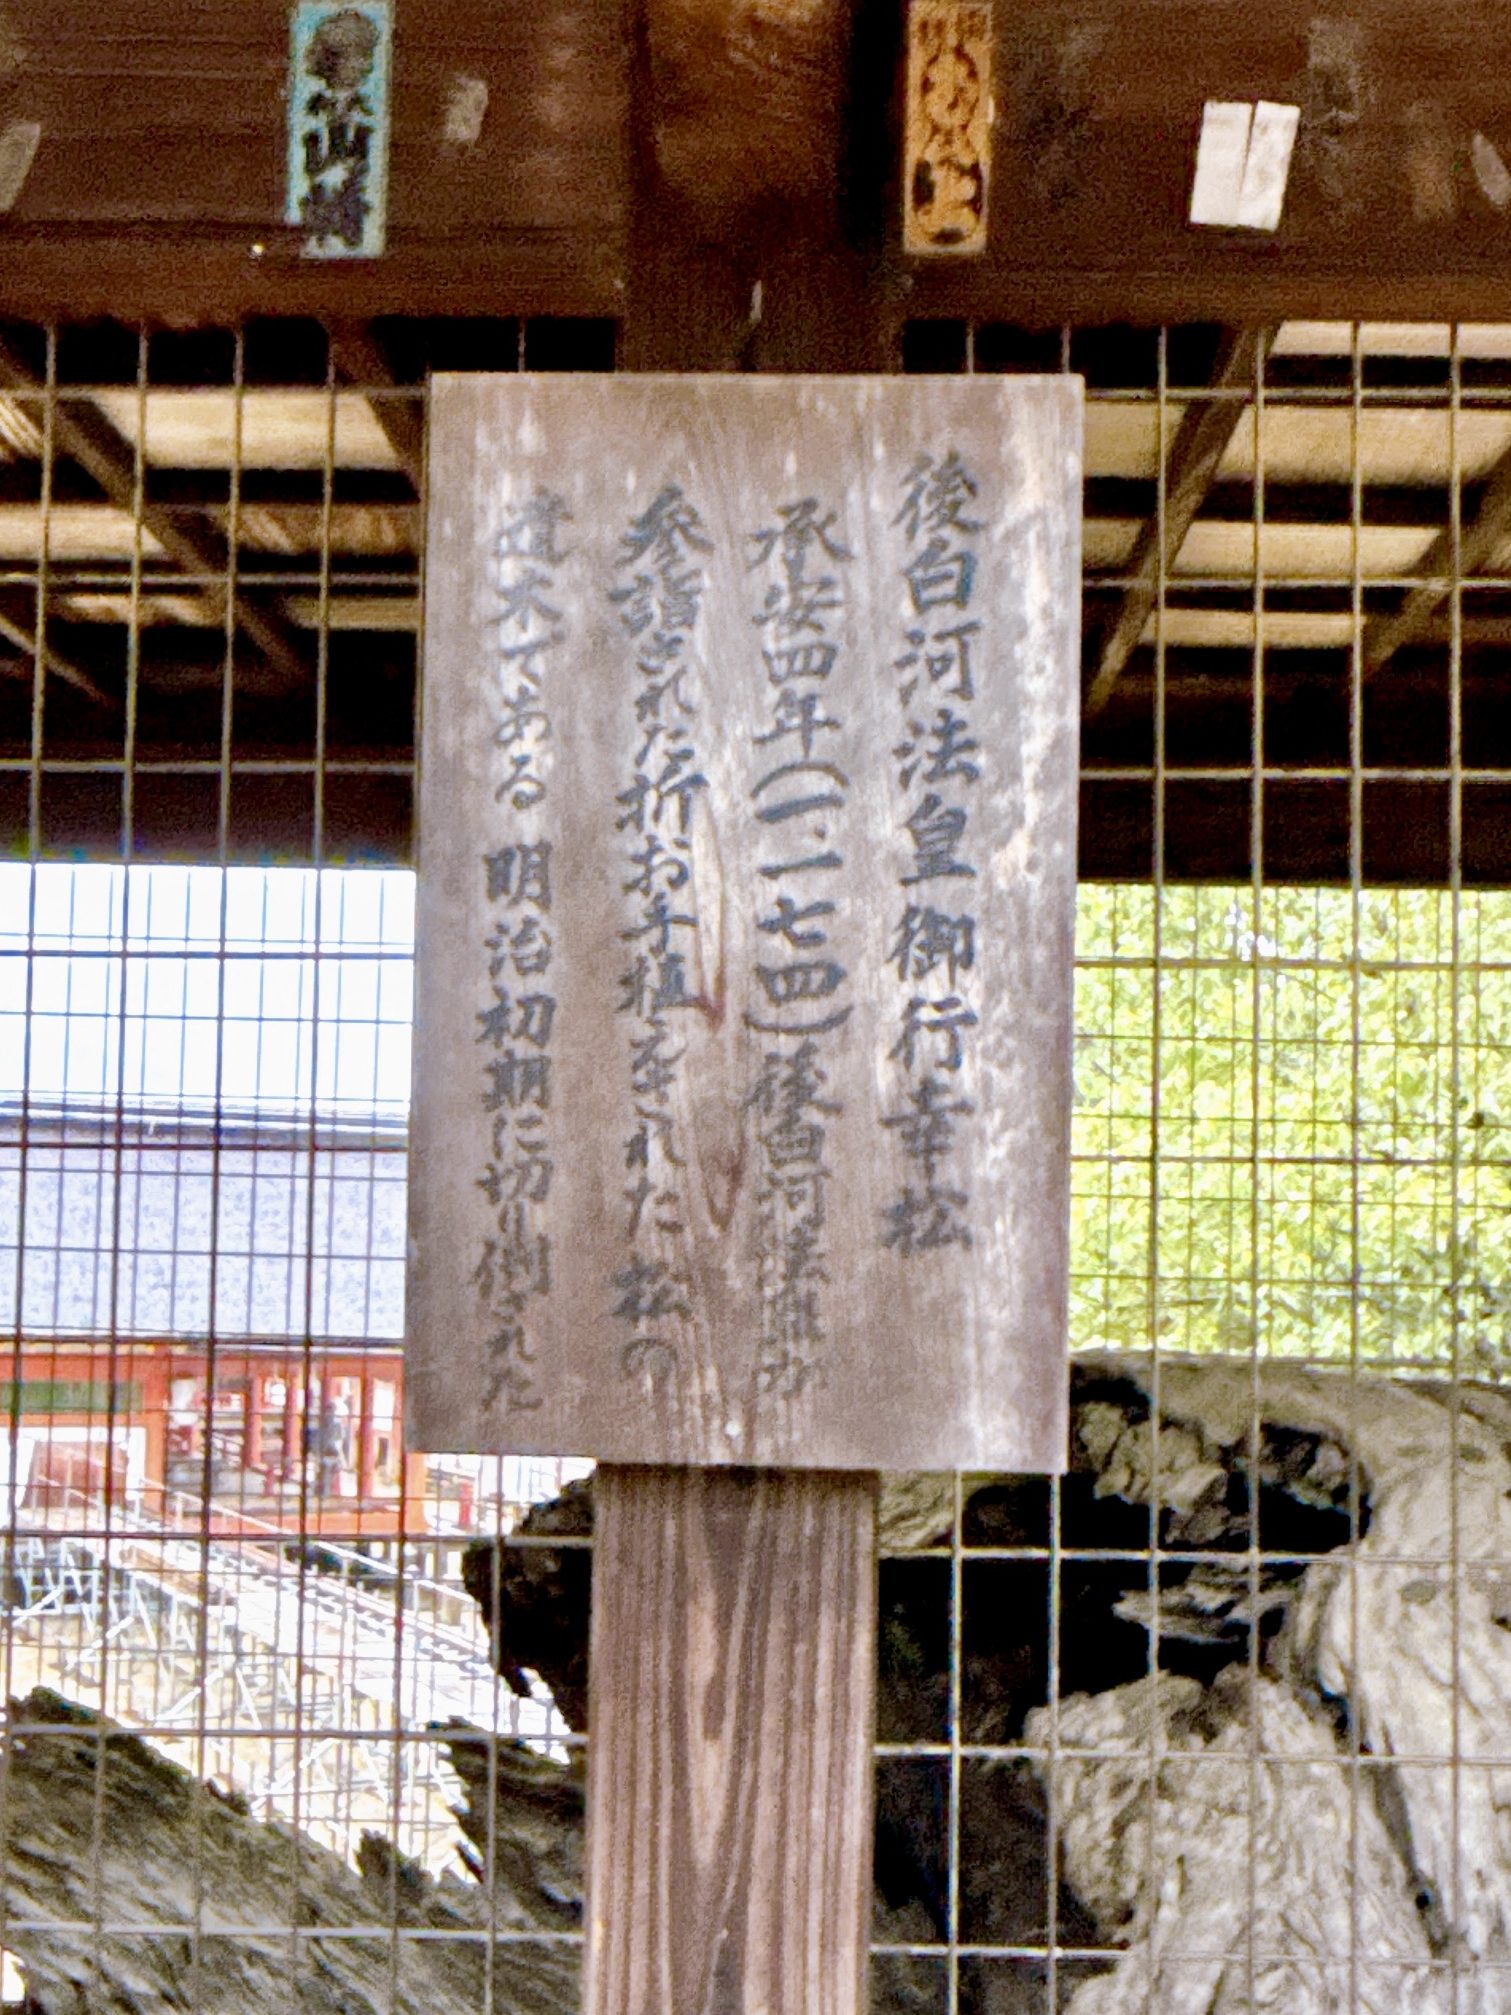 後白河法皇御行幸松
承安四年(一、一七四)後白河法皇が
参詣された折お手植えされた松の
遺木である 明治初期に切り倒された